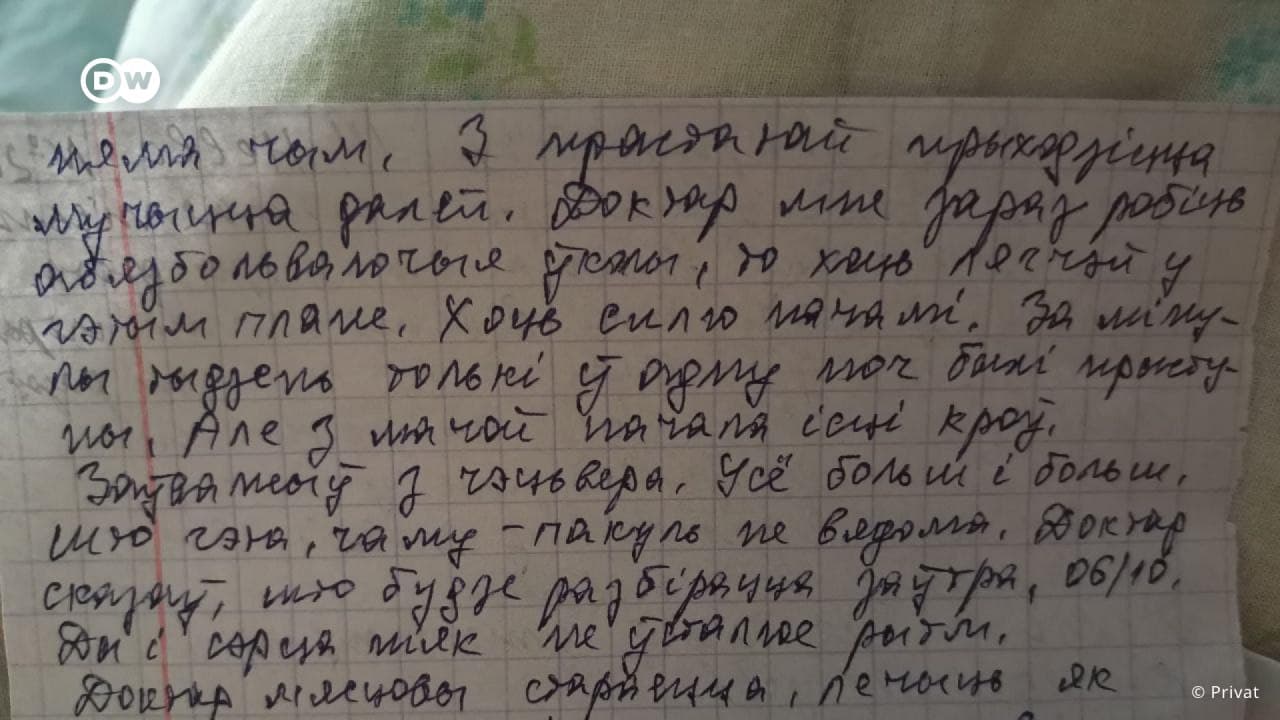 DW
няма чым. З прастатай прыходзіцца
мучыцца далей. Доктар мне зараз робіць
абязбольвалочыя ўколы, то хоць лягчэй у
гэтым плане. Хоць силю начамі. За міну-
лы тыдзень толькі ў адну ноч былі прысту-
пы. Але з мачой пачала ісці кроў.
Заўважыў з чэцьвера. Усё больш і больш.
што гэта, чаму - пакуль не вядома. Доктар
сказаў, што будзе разбірацца заўтра, 06/10.
Ды і сэрца ніяк не ўсталюе рытм.
Доктар мясцовы стараецца, лечыць як
© Privat